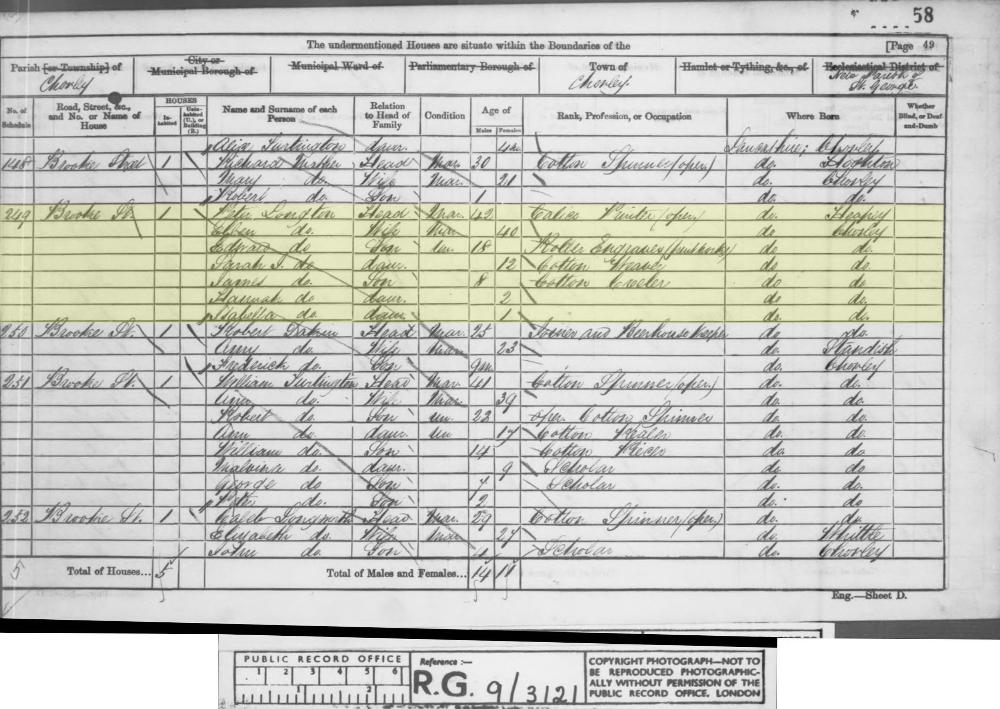 58
The undermentioned Houses are situate within the Boundaries of the
[Page 49
Parish [or Township] of Chorley
City or Municipal Borough of
Municipal Ward of
Parliamentary Borough of
Town of Chorley
Hamlet or Tything, &c., of
Ecclesiastical District of New Parish of St. George
No. of Schedule
Road, Street, &c., and No. or Name of House
HOUSES
In-habited
Unin-habited (U.), or Building (B.)
Name and Surname of each Person
Relation to Head of Family
Condition
Age of
Males
Females
Rank, Profession, or Occupation
Where Born
Whether Blind, or Deaf-and-Dumb
Alice Turlington daur. Lancashire; Chorley
248 Brooke Street 1 Richard Head Mar. 30 Cotton Spinner (oper) do. Hoghton
Mary do. Wife Mar. 21 do. Chorley
Robert do. Son 1 do. do.
249 Brooke St. 1 Peter Longton Head Mar. 42 Calico Printer (oper) do. Heapey
Ellen do. Wife Mar 40 do. Chorley
Edward do Son Un. 18 Roller Engraver (printworks) do do.
Sarah J. do daur. 12 Cotton Weaver do. do.
James do. Son 8 Cotton do. do.
Hannah do. daur. 2 do. do.
Isabella do. daur. 1 do. do.
250 Brooke St. 1 Robert Head Mar. 25 and Beerhouse Keeper do. do.
Ann do. Wife Mar 23 do. Standish
Frederick do. Son 9m do. Chorley
251 Brooke St. 1 William Turlington Head Mar. 41 Cotton Spinner (oper) do. do.
do. Wife Mar. 39 do. do.
Robert do. Son Un 22 oper. Cotton Spinner do. do.
Ann do. daur. Un 17 Cotton do. do.
William do. Son 14 Cotton Piecer do. do.
Malvina do. daur. 9 Scholar do. do.
George do Son 7 Scholar do. do.
do. Son 2 do. do.
252 Brooke St. 1 Caleb Longworth Head Mar. 29 Cotton Spinner (oper) do. do.
Elizabeth do. Wife Mar 27 do. Whittle
John do. Son 4 Scholar do. Chorley
5 Total of Houses... 5
Total of Males and Females... 14 11
Eng.—Sheet D.
PUBLIC RECORD OFFICE
1 2 3 4 5 6
1 2
Reference :—
R.G. 9/3121
COPYRIGHT PHOTOGRAPH—NOT TO
BE REPRODUCED PHOTOGRAPHIC-
ALLY WITHOUT PERMISSION OF THE
PUBLIC RECORD OFFICE, LONDON